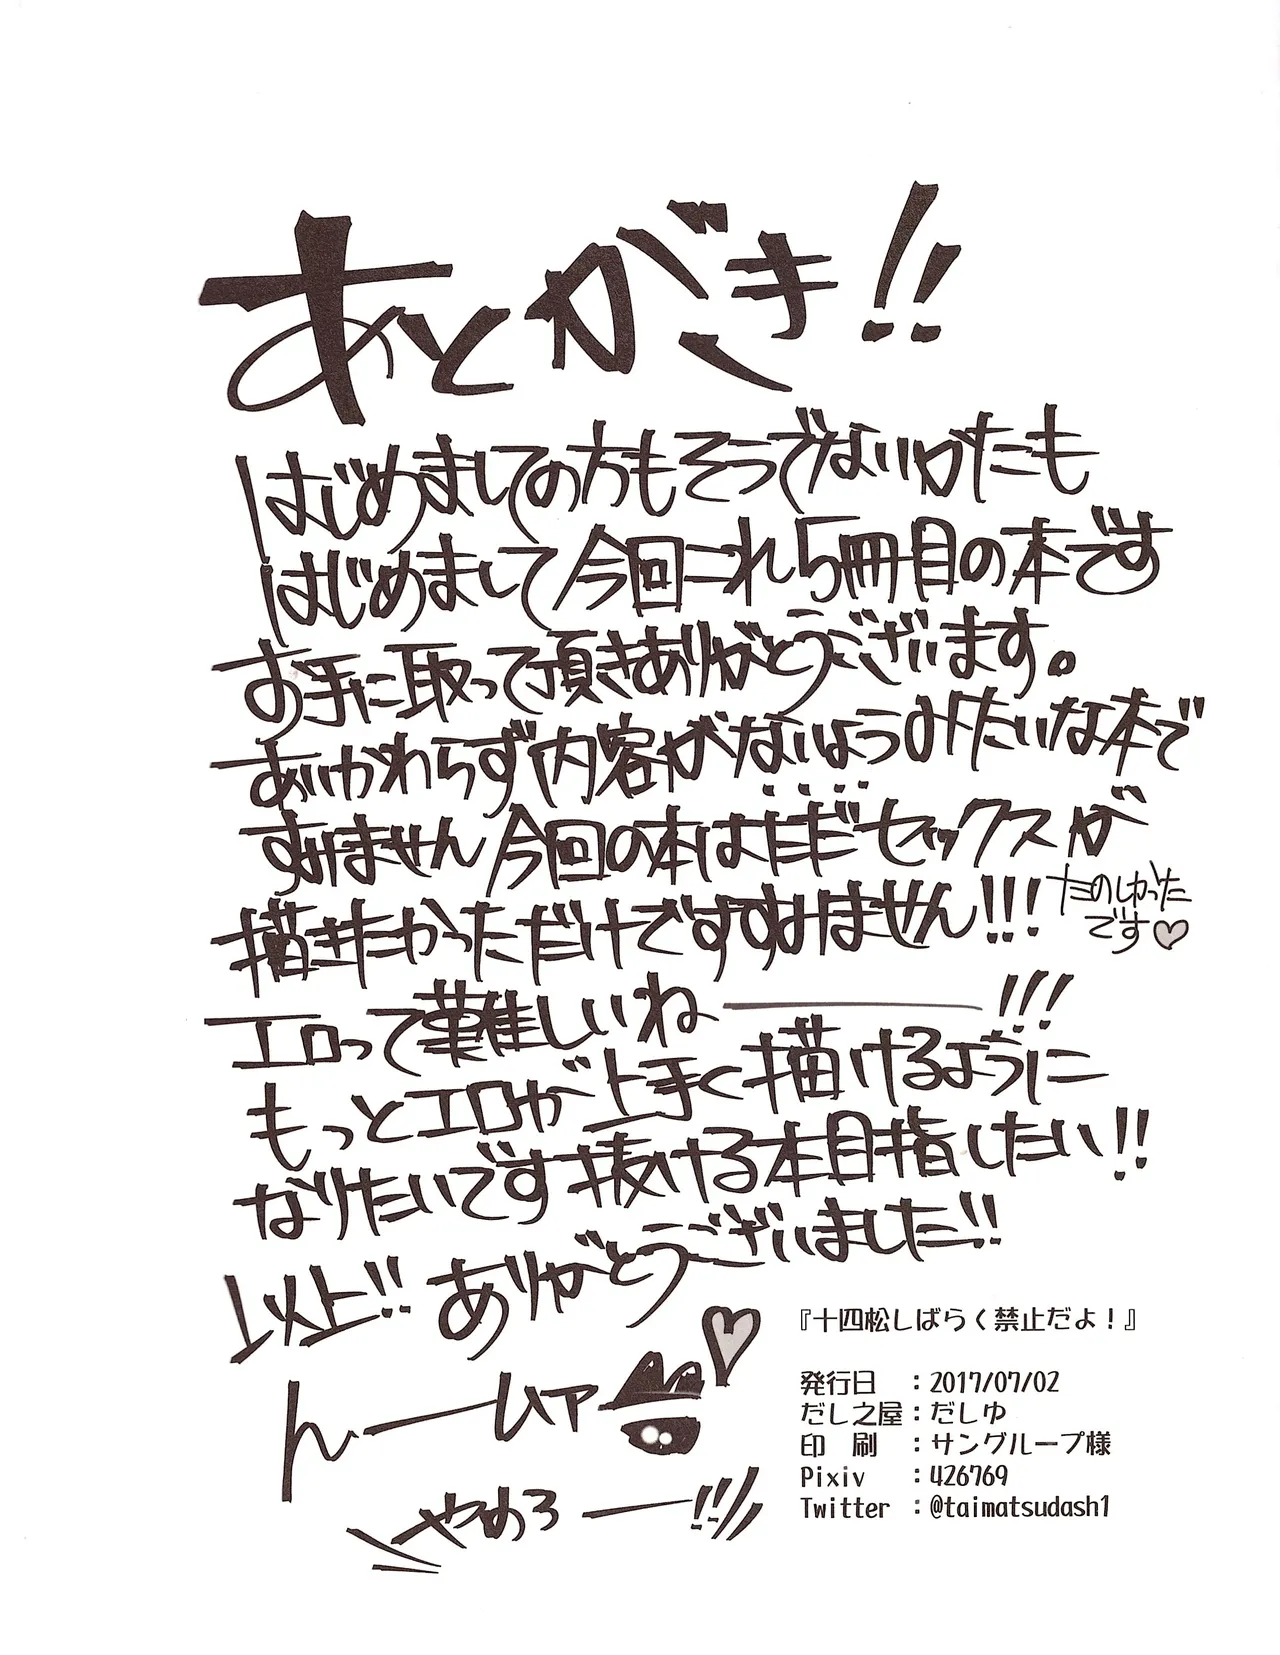 あとがき!!
はじめましての方もそうでないかたも
はじめまして今回これ5冊目の本です
お手に取って頂きありがとうございます。
あいかわらず内容がないようみたいな本で
すみません今回の本はただセックスが
描きたかっただけですすみません!!!
たのしかった
です♡
エロって難しいね――!!!
もっとエロが上手く描けるように
なりたいです抜ける本目指したい!!
以上!!ありがとうございました!!
んーームァ
やめろー!!
『十四松しばらく禁止だよ!』
発行日 :2017/07/02
だし之屋:だしゆ
印 刷 :サングループ様
Pixiv :426769
Twitter :@taimatsudash1